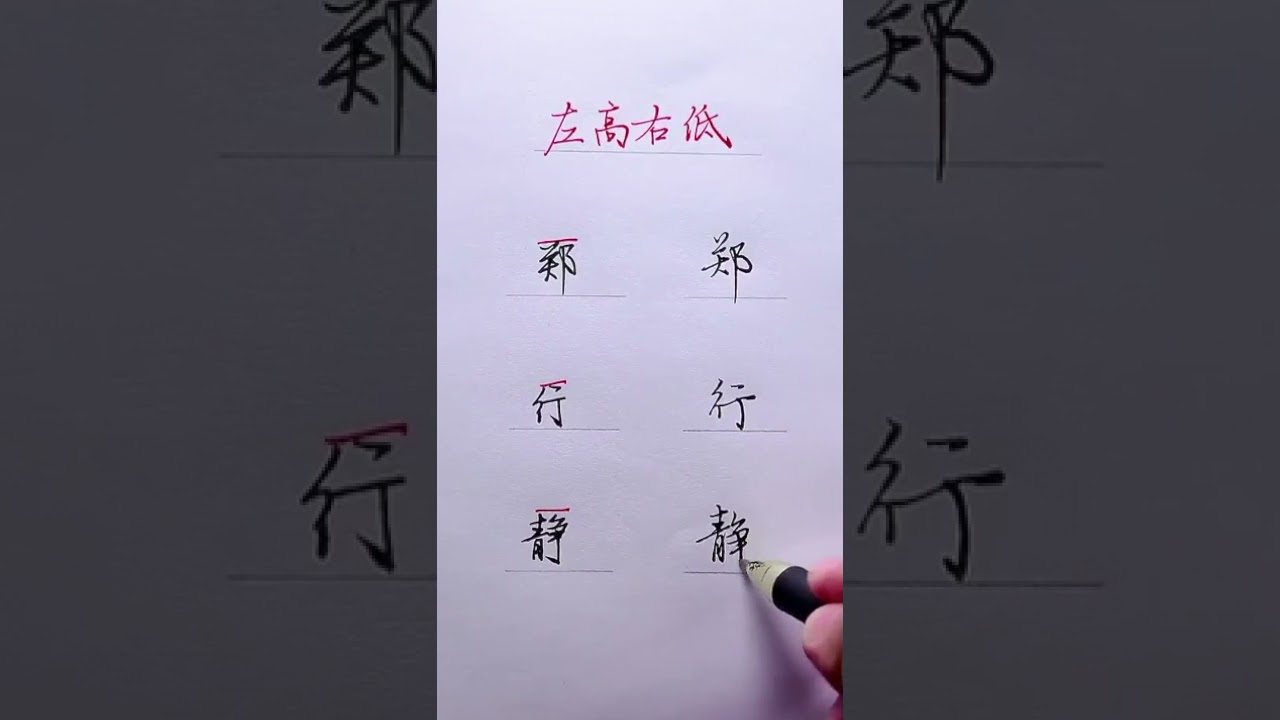 左高右低
郑 郑
行 行
静 静